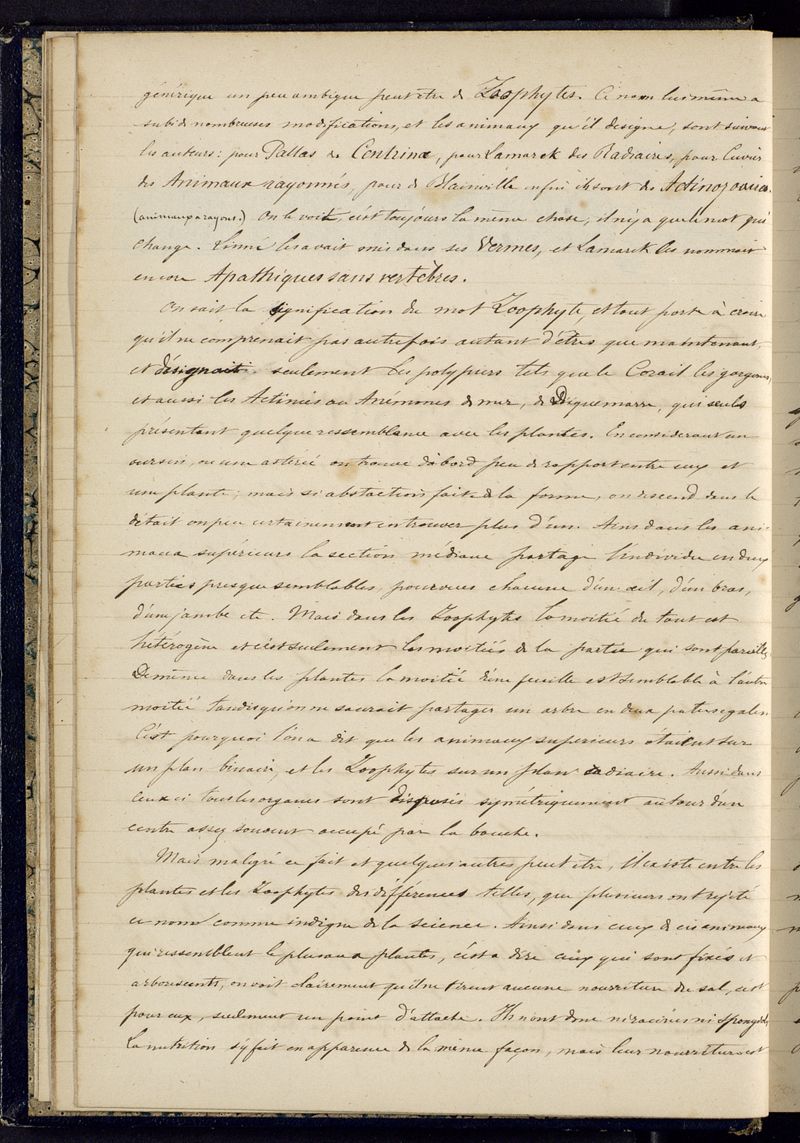 générique un peu ambigue peut être de Zoophytes. Ce nom lui même a
subi de nombreuses modifications, et les animaux qu'il designe, sont suivant
les auteurs: pour Pallas des Centrinæ, pour Lamarck des Radiaires, pour Cuvier
des Animaux rayonnés, pour de Blainville enfin ils sont des Actinozoaires.
(animaux rayons.) On le voit, c'est toujours la même chose, il n'y a que le mot qui
change. Linné les avait mis dans ses Vermes, et Lamarck les nommait
encore Apathiques sans vertèbres.
On sait la signification du mot Zoophyte et tout porte à croire
qu'il ne comprenait pas autrefois autant d'êtres que maintenant,
et désignait seulement les polypiers tels que le Corail les gorgones,
et aussi les Actinies ou Anémones de mer, de Diquemarre, qui seuls
présentant quelque ressemblance avec les plantes. En considerant un
oursin, ou une asterie on trouve d'abord peu de rapport entre eux et
une plante; mais si abstaction faite de la forme, on descend dans le
détail on peu certainement en trouver plus d'un. Ains dans les ani-
maux supérieurs la section médiane partage l'individu en deux
parties presque semblables pourvues chacune d'un œil, d'un bras,
d'une jambe etc. Mais dans les Zoophytes la moitié du tout est
hétérogène et c'est seulement les moitiés de la partie qui sont pareilles
De même dans les plantes la moitié d'une feuille est semblable à l'autre
moitié tandisqu'on ne saurait partager un arbre en deux parties egales
C'est pourquoi l'on a dit que les animaux superieurs étaient sur
un plan binaire, et les Zoophytes sur un plan radiaire. Aussi dans
ceux ci tous les organes sont disposés symétriquement autour d'un
centre assez souvent occupé par la bouche.
Mais malgré ce fait et quelques autres peut être, il existe entre les
plantes et les Zoophytes des différences telles, que plusieurs ont rejeté
ce nom comme indigne de la science. Ainsi dans ceux de ces animaux
qui ressemblent le plus aux plantes, c'est a dire ceux qui sont fixés et
arborescents, on voit clairement qu'il ne tirent aucune nourriture du sol, c'est
pour eux, seulement un point d'attache. Ils n'ont donc ni racines ni spongioles,
La nutrition s'y fait en apparence de la même façon, mais leur nourriture est